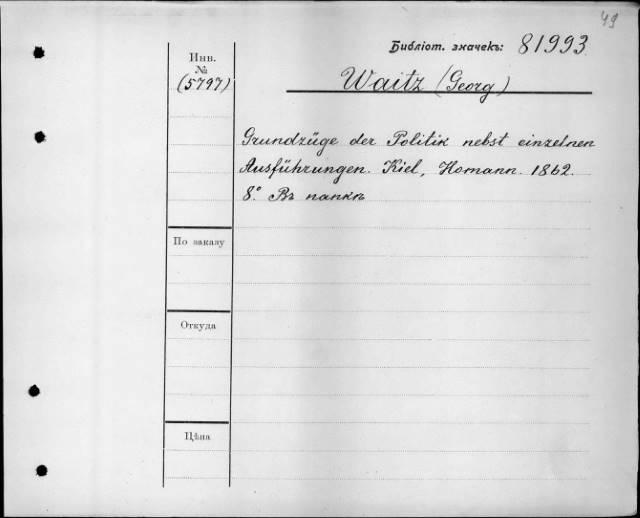 49
Библіот. значекъ: 81993
Инв.
№
(5797)
Waitz (Georg)
Grundzüge der Politik nebst einzelnen
Ausführungen. Kiel, Homann. 1862.
8.° Въ папкѣ
По заказу
Откуда
Цѣна